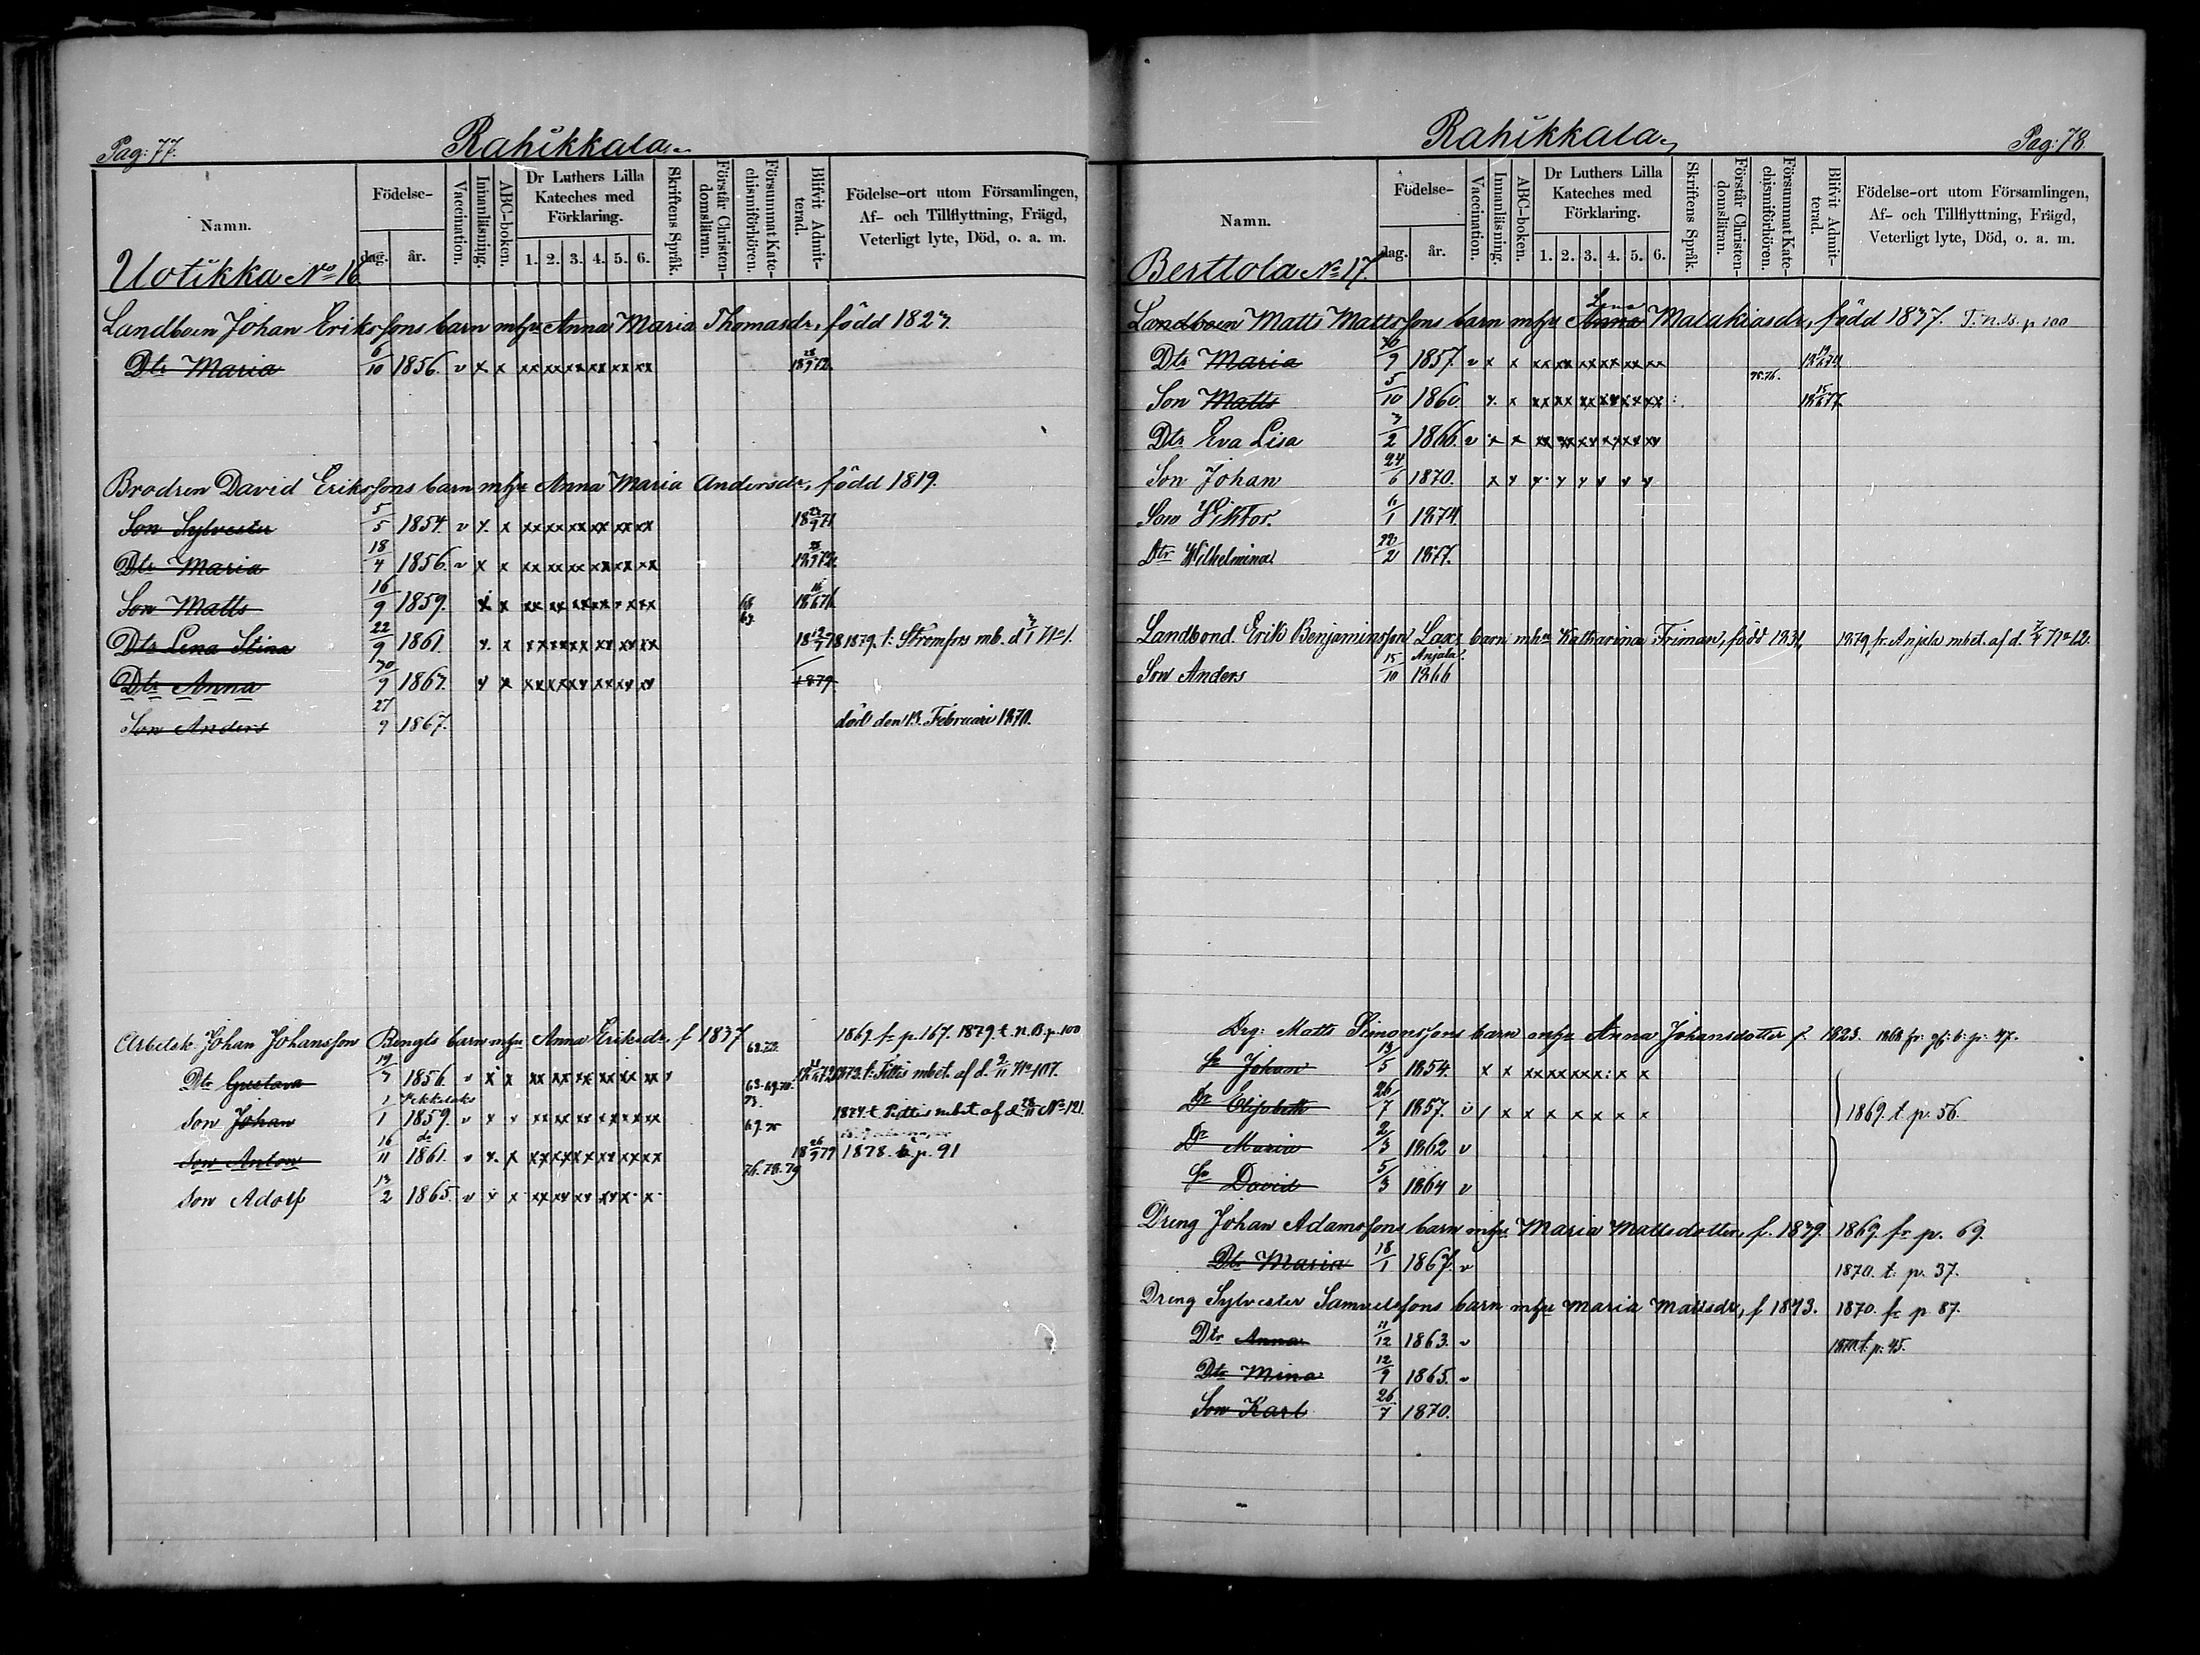 Pag: 77.
Rahikkala
Namn.
Födelse-
dag. år.
Vaccination.
Innanläsning.
ABC-boken.
Dr Luthers Lilla Kateches med Förklaring.
1. 2. 3. 4. 5. 6.
Skriftens Språk.
Förstår Christendomsläran.
Försummat Katechismiförhören.
Blifvit Admitterad.
Födelse-ort utom Församlingen,
Af- och Tillflyttning, Frägd,
Veterligt lyte, Död, o. a. m.
Uotikka No 16
Landboen Johan Erikssons barn mhu Anna Maria Thomasdr, född 1827.
Dtr Maria 6/10 1856. v x x xx xx xx xx xx xx
Brodren David Erikssons barn mhu Anna Maria Andersdr, född 1819.
Son Sylvester 5/5 1854. v x x xx xx xx xx xx xx
Dtr Maria 18/4 1856. v x x xx xx xx xx xx xx
Son Matts 16/9 1859. x x xx xx xx xx x xx
Dtr Lena Stina 22/9 1861. x x xx xx xx xx xx xx 1879. t. Strömfors mb. d. No 1.
Dtr Anna 30/9 1863. x x xx xx xx xx xx x 1879
Son Anders 27/9 1867. död den 13. Februari 1870.
Arbetsk. Johan Johansson Bengts barn mhu Anna Eriksdr, f 1837. 1869. fr p. 167. 1879 t. n. B. p. 100
Dtr Gustava 19/7 1856. v x x xx xx xx xx xx x 1873 t. Pyttis mbet. af d. 9/11 No 107.
Son Johan 1/1 1859. v x x xx xx xx xx xx xx 1874 t. Pyttis mbet af d. 28/11 No 121.
Son Anton 16/11 1861. v x x xx xx xx xx xx xx 1878. t. p. 91
76. 78. 79
Son Adolf 13/2 1865. v x x xx xx xx xx x x
Rahikkala
Pag: 78.
Namn.
Födelse-
dag. år.
Vaccination.
Innanläsning.
ABC-boken.
Dr Luthers Lilla Kateches med Förklaring.
1. 2. 3. 4. 5. 6.
Skriftens Språk.
Förstår Christendomsläran.
Försummat Katechismiförhören.
Blifvit Admitterad.
Födelse-ort utom Församlingen,
Af- och Tillflyttning, Frägd,
Veterligt lyte, Död, o. a. m.
Berttola No 17.
Lena
Landboen Matts Mattssons barn mhu Anna Malakiasdr, född 1837. T. n. B. p 100
Dtr Maria 30/9 1857. v x x xx xx xx xx xx xx
75. 76.
Son Matts 5/10 1860. x x xx xx xx xx xx xx
Dtr Eva Lisa 3/2 1866. v x x xx xx xx xx xx xx
Son Johan 24/6 1870. x x x x x x x
Son Viktor. 6/1 1874.
Dtr Wilhelmina 22/2 1877.
Landbond. Erik Benjaminsson Lax barn mhu Katharina Friman, född 1831, 1879 fr. Anjala mbet. af d. No 12.
Anjala.
Son Anders 15/10 1866
Drg: Matts Simonssons barn mhu Anna Johansdotter f. 1823.
Sn Johan 13/5 1854. x x xx xx xx x x
Dr Elisabeth 26/7 1857. v / x x x x x x x 1869. t. p. 56.
Dr Maria 2/3 1862 v
Sn David 5/3 1864 v
Dreng Johan Adamssons barn mhu Maria Mattsdotter, f. 1839. 1869. fr p. 69.
Dtr Maria 18/1 1867. v 1870. t. p. 37.
Dreng Sylvester Samuelssons barn mhu Maria Mattsdr, f 1843. 1870. fr p 87.
Dtr Anna 11/12 1863. v t. p. 45.
Dtr Mina 12/9 1865. v
Son Karl 26/7 1870.